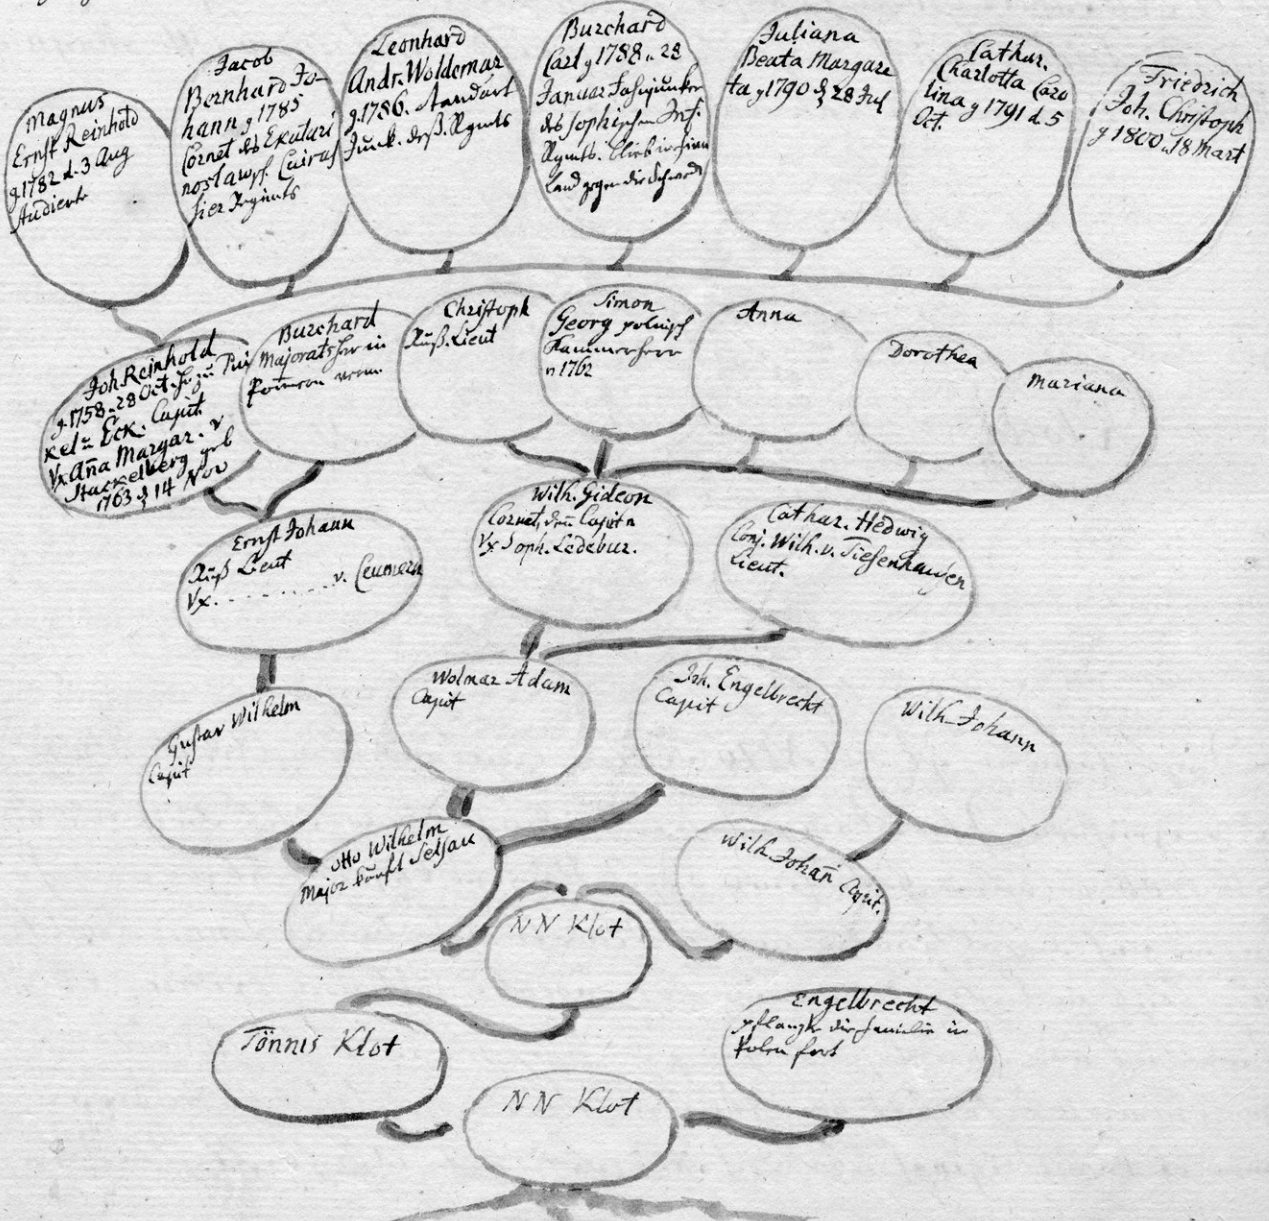 Magnus
Ernst Reinhold
g. 1782 d. 3 Aug
Jacob
Bernhard Jo-
hann g 1785
Cornet des Ekatari
noslawsch. Cuiras
sier Regimts
Leonhard
Andr. Woldemar
g. 1786. Standart
Junck. dess. Rgmts
Burchard
Carl g 1788 28
Januar
des Sophischen Inf.
Rgmts. blieb in Finn
land gegen die Schwed
Juliana
Beata Margare
ta g 1790 d 28 Jul
Cathar.
Charlotta Caro
lina g 1791 d 5
Oct.
Friedrich
Joh. Christoph
g 1800 d 18 Mart
Joh. Reinhold
g. 1758. 28 Oct. Hr zu Pui
kel u Eck. Capit.
Vx. Aña Margar. v
Stackelberg geb
1763 d 14 Nov
Burchard
Majoratsherr in
Christoph
Ruß. Lieut
Simon
Georg polnisch
Kammerherr
n 1762
Anna
Dorothea
Mariana
Ernst Johann
Ruß Lieut
Vx. . . . . . . . . . v. Ceumern
Wilh. Gideon
Cornet, deñ Capitn
Vx Soph. Ledebur.
Cathar. Hedwig
Conj. Wilh. v. Tiesenhausen
Lieut.
Gustav Wilhelm
Capit
Wolmar Adam
Capit
Joh. Engelbrecht
Capit
Wilh. Johann
Otto Wilhelm
Major
Wilh. Johañ Capit.
N N Klot
Tönnis Klot
Engelbrecht
pflanzte die Familie in
Polen fort
N N Klot